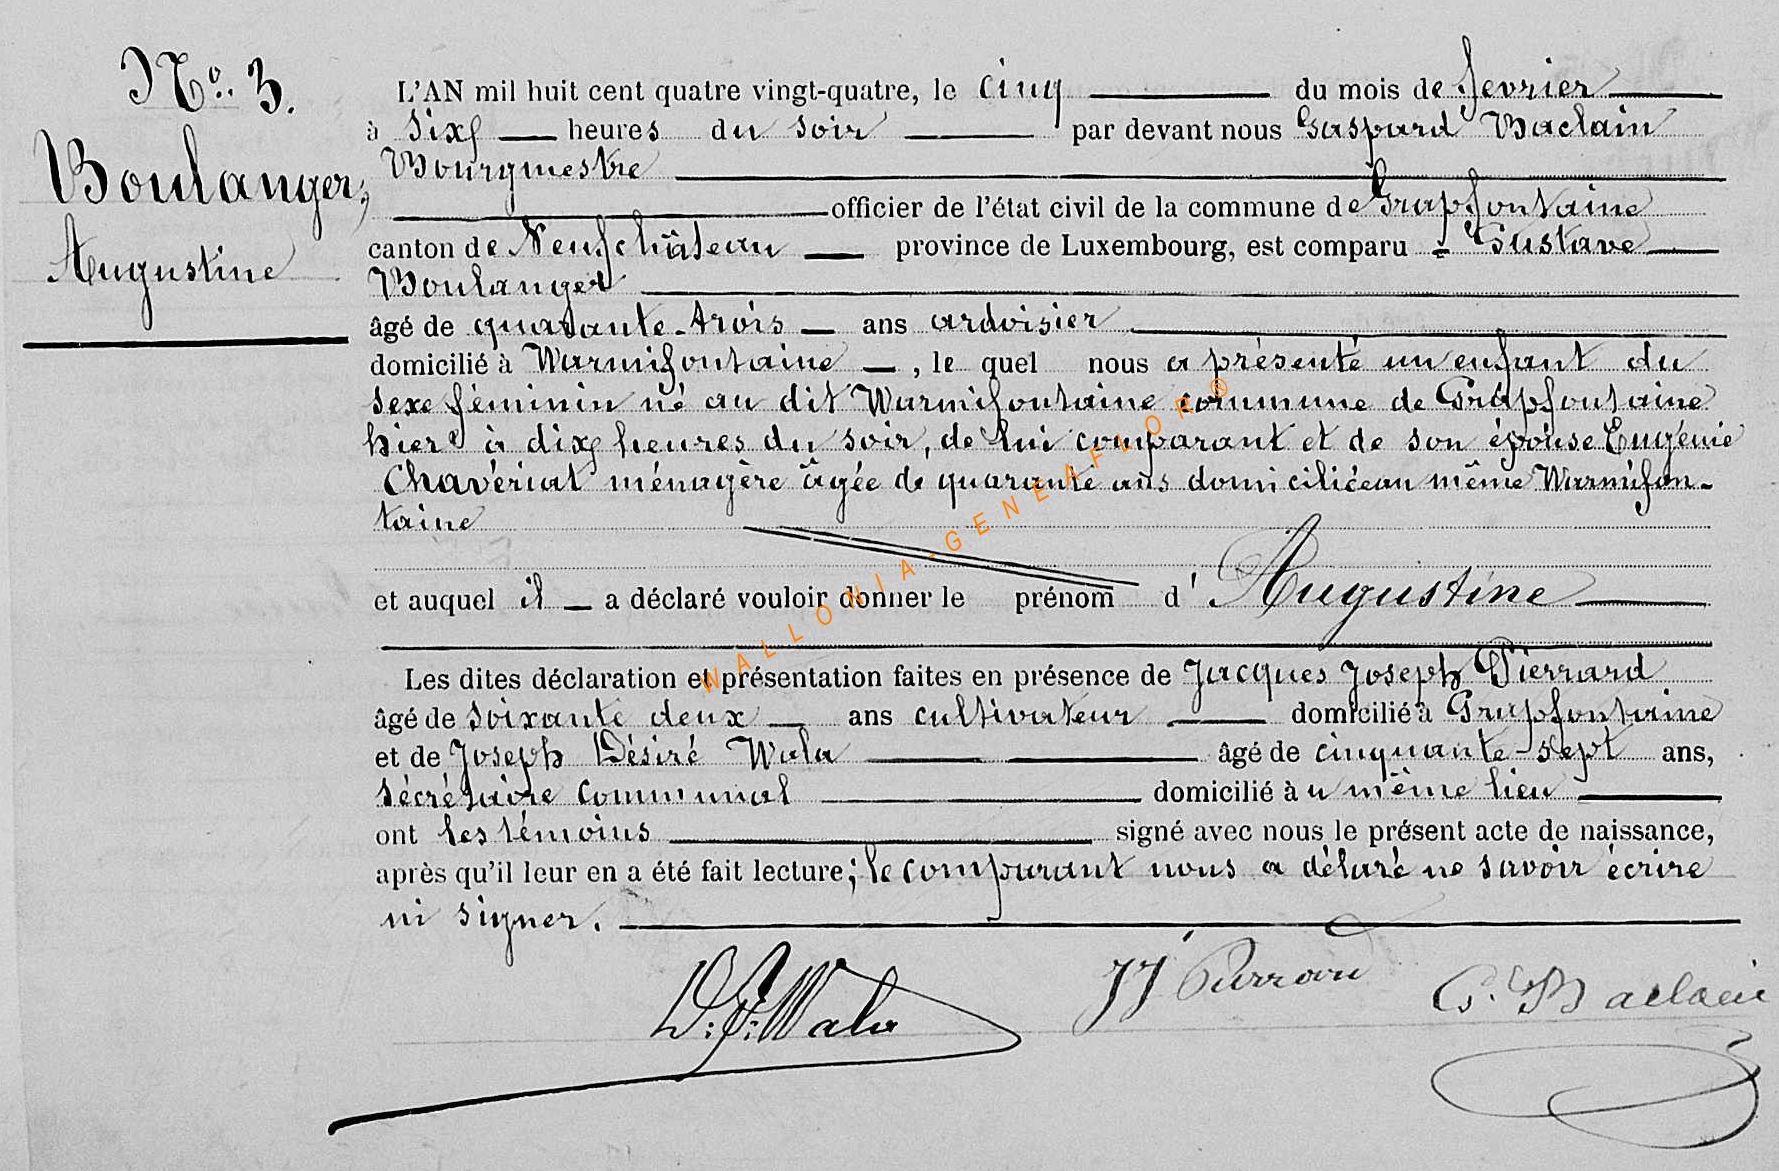 No. 3.
Boulanger,
Augustine
L'AN mil huit cent quatre vingt-quatre, le cinq du mois de fevrier
à six heures du soir par devant nous Gaspard Baclain
Bourgmestre
officier de l'état civil de la commune de Grapfontaine
canton de Neufchâteau province de Luxembourg, est comparu Gustave
Boulanger
âgé de quarante-trois ans ardoisier
domicilié à Warmifontaine, le quel nous a présenté un enfant du
sexe féminin né au dit Warmifontaine commune de Grapfontaine
hier à dix heures du soir, de lui comparant et de son épouse Eugénie
Chavériat ménagère âgée de quarante ans domiciliée au même Warmifon-
taine
et auquel il a déclaré vouloir donner le prénom d'Augustine
Les dites déclaration et présentation faites en présence de Jacques Joseph Pierrard
âgé de soixante deux ans cultivateur domicilié à Grapfontaine
et de Joseph Désiré Wala âgé de cinquante-sept ans,
sécrétaire communal domicilié à u même lieu
ont les témoins signé avec nous le présent acte de naissance,
après qu'il leur en a été fait lecture; le comparant nous a délaré ne savoir écrire
ni signer.
D. J. Wala JJ Pierrard G. Baclain
WALLONIA-GENEAFLOR®